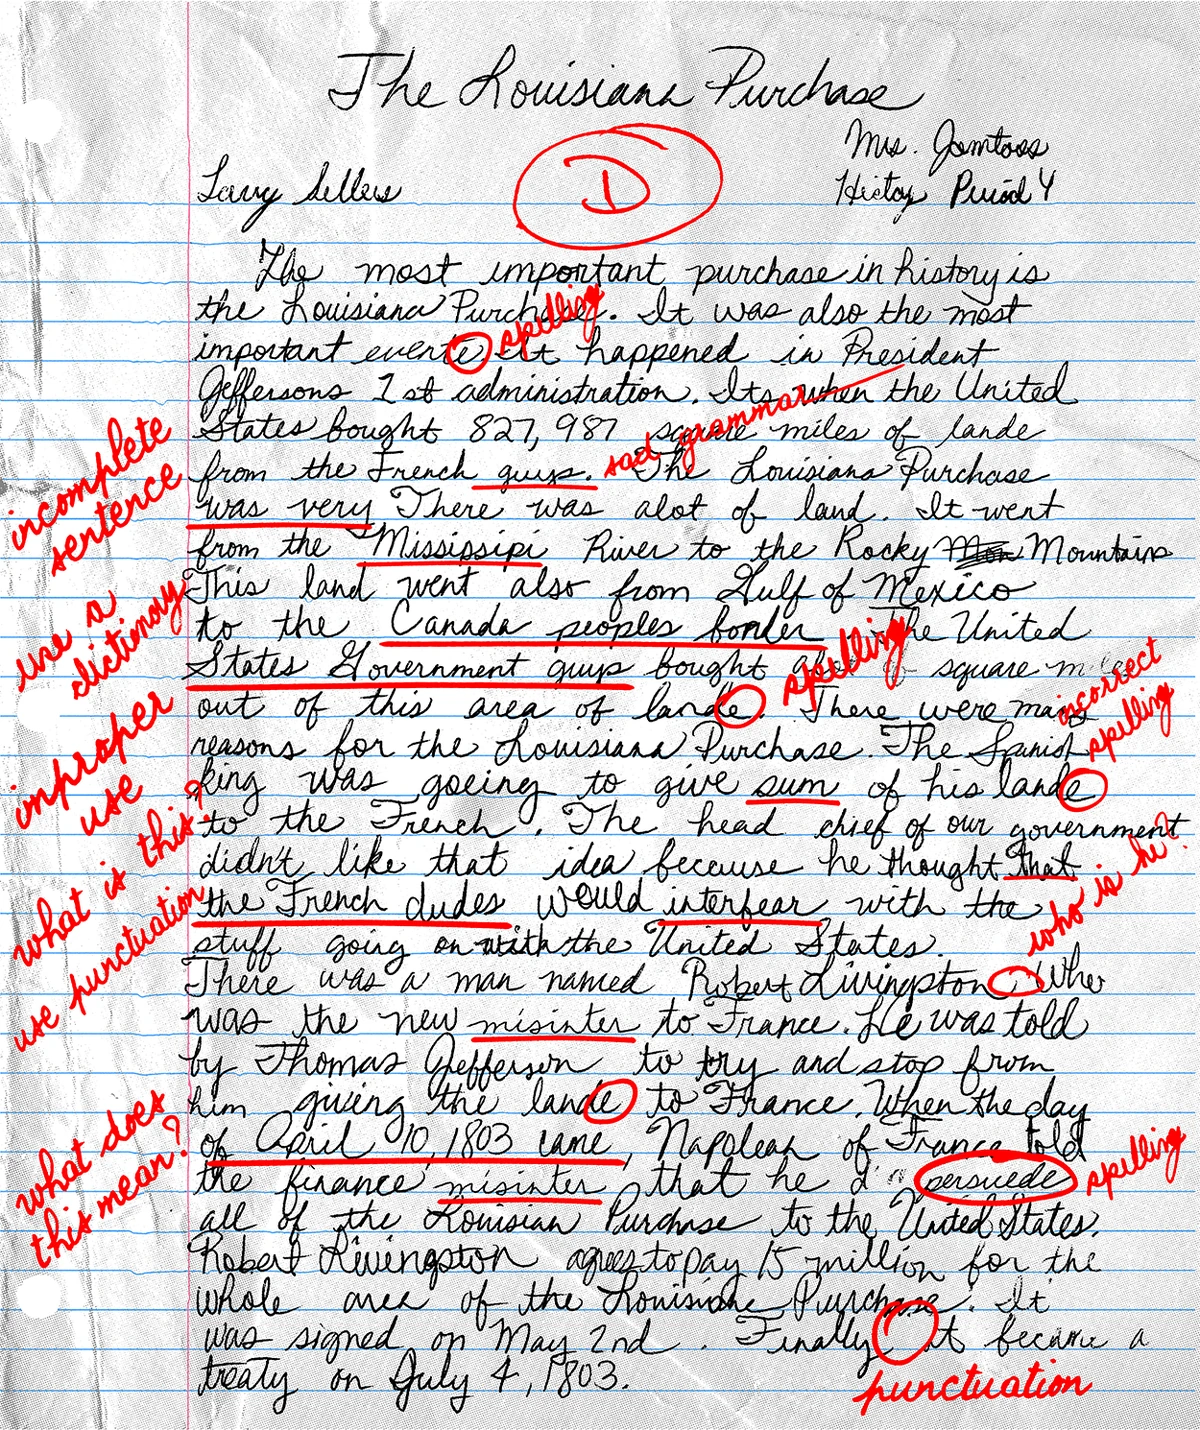 The Louisiana Purchase
Mrs. Jamtoss
D
Larry Sellers
History Period 4
The most important purchase in history is
the Louisiana Purchase. It was also the most
spelling
important evente It happened in President
Jeffersons 1st administration. Its when the United
sad grammar
States bought 827,987 square miles of lande
from the French guys. The Louisiana Purchase
incomplete
sentence
was very There was alot of land. It went
from the Mississipi River to the Rocky Mountains
use a
dictionary
This land went also from Gulf of Mexico
to the Canada peoples border. The United
spelling
States Government guys bought alot of square miles
improper
use
out of this area of lande. There were many
incorrect
spelling
reasons for the Louisiana Purchase. The Spanish
king was goeing to give sum of his lande
what is this?
to the French. The head chief of our government
who is he?
didn't like that idea because he thought that
use punctuation
the French dudes would interfear with the
stuff going on with the United States.
There was a man named Robert Livingston Who
was the new misinter to France. He was told
by Thomas Jefferson to try and stop from
him giving the lande to France. When the day
what does
this mean?
of April 10, 1803 came, Napolean of France told
the finance misinter that he persuede
spelling
all of the Louisian Purchase to the United States.
Robert Livingston agrees to pay 15 million for the
whole area of the Louisiane Purchase. It
was signed on May 2nd. Finally it became a
treaty on July 4, 1803.
punctuation